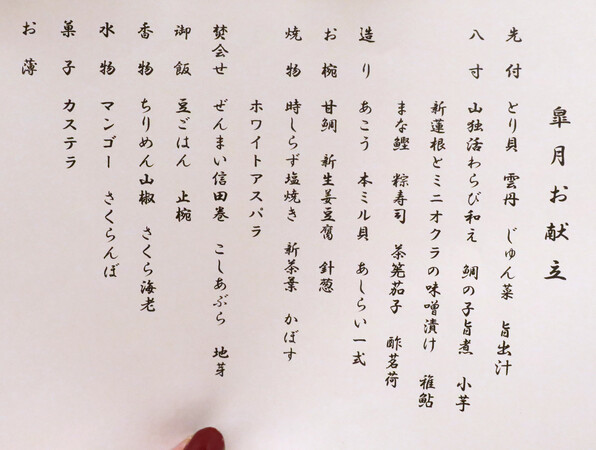 皐月お献立
先付 とり貝 雲丹 じゅん菜 旨出汁
八寸 山独活わらび和え 鯛の子旨煮 小芋
新蓮根とミニオクラの味噌漬け 稚鮎
まな鰹 粽寿司 茶筅茄子 酢茗荷
造り あこう 本ミル貝 あしらい一式
お椀 甘鯛 新生姜豆腐 針葱
焼物 時しらず塩焼き 新茶葉 かぼす
ホワイトアスパラ
焚会せ ぜんまい信田巻 こしあぶら 地芽
御飯 豆ごはん 止椀
香物 ちりめん山椒 さくら海老
水物 マンゴー さくらんぼ
菓子 カステラ
お薄